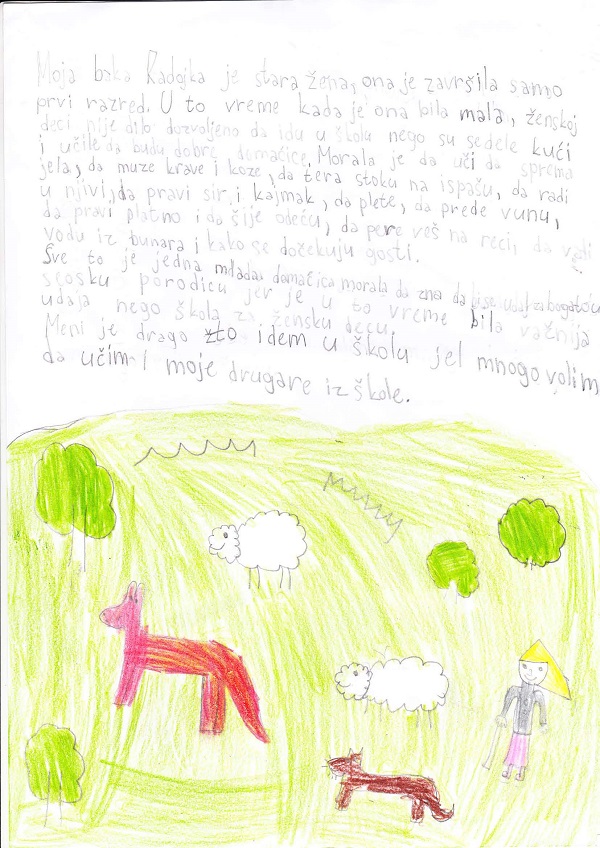 Moja baka Radojka je stara žena, ona je završila samo
prvi razred. U to vreme kada je ona bila mala, ženskoj
deci nije bilo dozvoljeno da idu u školu nego su sedele kući
i učile da budu dobre domaćice. Morala je da uči da sprema
jela, da muze krave i koze, da tera stoku na ispašu, da radi
u njivi, da pravi sir i kajmak, da plete, da prede vunu,
da pravi platno i da šije odeću, da pere veš na reci, da vadi
vodu iz bunara i kako se dočekuju gosti.
Sve to je jedna mlada domaćica morala da zna da bi se udala za bogatu
seosku porodicu jer je u to vreme bila važnija
udaja nego škola za žensku decu.
Meni je drago što idem u školu jel mnogo volim
da učim i moje drugare iz škole.